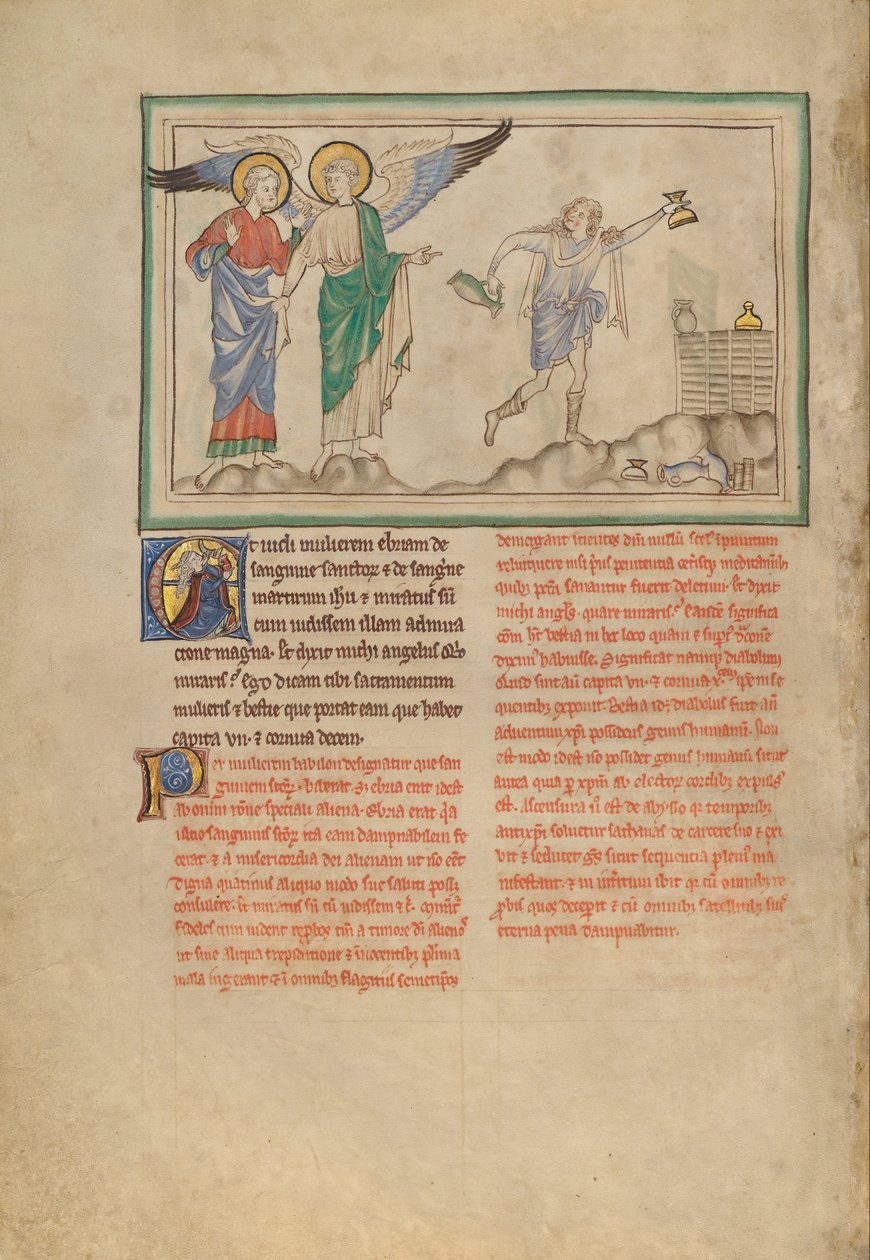 Et uidi mulierem ebriam de
sanguine sanctoꝝ ⁊ de sangˀne
martirum ihu ⁊ miratus sū
cum uidissem illam admira
cione magna. Et dixit michi angelus Qͣre
miraris? Ego dicam tibi sacramentum
mulieris ⁊ bestie que portat eam que habet
capita vii. ⁊ cornua decem.
Per mulierem babilon designatur que san
guinem scōꝝ biberat. ⁊ ebria erat idest
ab omni rōne speciali aliena. Ebria erat qͥa
sanguinis scōꝝ ita eam dampnabilem fe
cerat. ⁊ a misericordia dei alienam ut nō eēt
digna quatinus aliquo modo sue saluti poss
consulere. Et miratus sū cū uidissem ⁊ c̄.
fideles cum uident reꝓbos tm̄ a timore dī alienoˢ
ut sine aliqua trepidatione ⁊ īnocentibꝫ plima
mala ingerant ⁊ ī omnibꝫ flagitiis semetipos
demergant scientes dm̄ nullū scelˢ īpunitum
relinquere nisi pˀus penitentia meditamībꝫ
quibꝫ pctm̄ sanantur fuerit deletum. Et dixit
michi anglˢ. quare miraris? eandē significa
cōm hꝫ bestia in hoc loco quam ⁊ supͥ dͣconē
diximˀ habuisse. Significat namqꝫ diabolum
Quid sint aū capita vii. ⁊ cornua x.cem ipse in se
quentibꝫ exponit. Bestia id; diabolus fuit an̄
aduentum xp̄i possidens genus humanū. Non
est modo idest nō possidet genus humanū sicut
antea quia ꝑ xp̄m ab electoꝝ cordibꝫ expulsˢ
est. Ascensura ū est de abysso qꝛ temporibꝫ
antixp̄i soluetur sathanas de carcere suo ⁊ exi
bit ⁊ seducet gˢs sicut sequentia pleniˢ ma
nifestant. ⁊ in īteritum ibit qꝛ cū omnibꝫ re
ꝓbis quos deceperit ⁊ cū omnibꝫ satellitibꝫ suis
eterna pena dampnabitur.